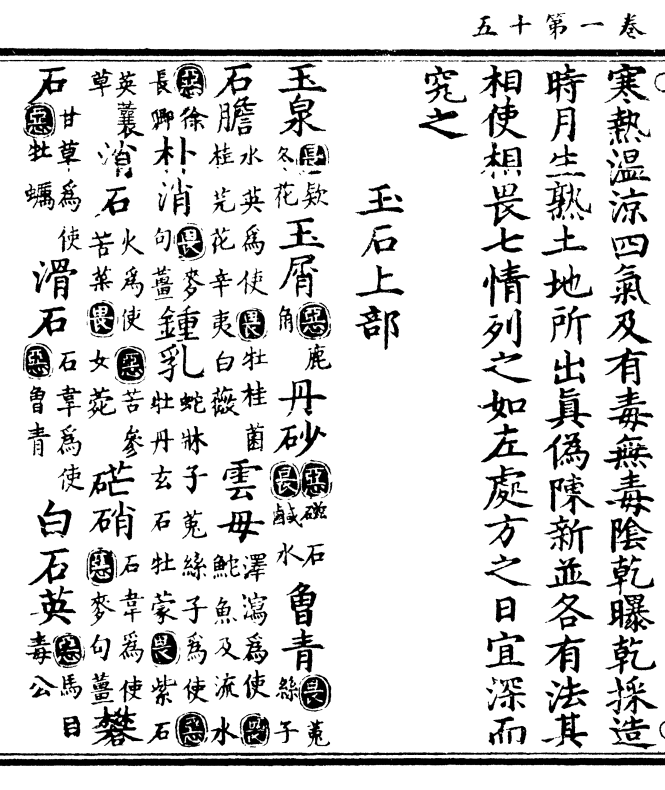 卷一第十五
寒熱温涼四氣及有毒無毒陰乾曝乾採造
時月生熟土地所出眞偽陳新並各有法其
相使相畏七情列之如左處方之日宜深而
究之
玉石上部
玉泉畏欵冬花玉屑惡鹿角丹砂惡磁石畏鹹水魯青畏菟絲子
石膽水英爲使畏牡桂菌桂芫花辛夷白薇雲母澤瀉爲使畏鮀魚及流水
惡徐長卿朴消畏麥句薑鍾乳蛇牀子菟絲子爲使惡牡丹玄石牡蒙畏紫石
英蘘草消石火爲使惡苦參苦菜畏女菀硭硝石韋爲使惡麥句薑礬
石甘草爲使惡牡蠣滑石石韋爲使惡魯青白石英惡馬目毒公